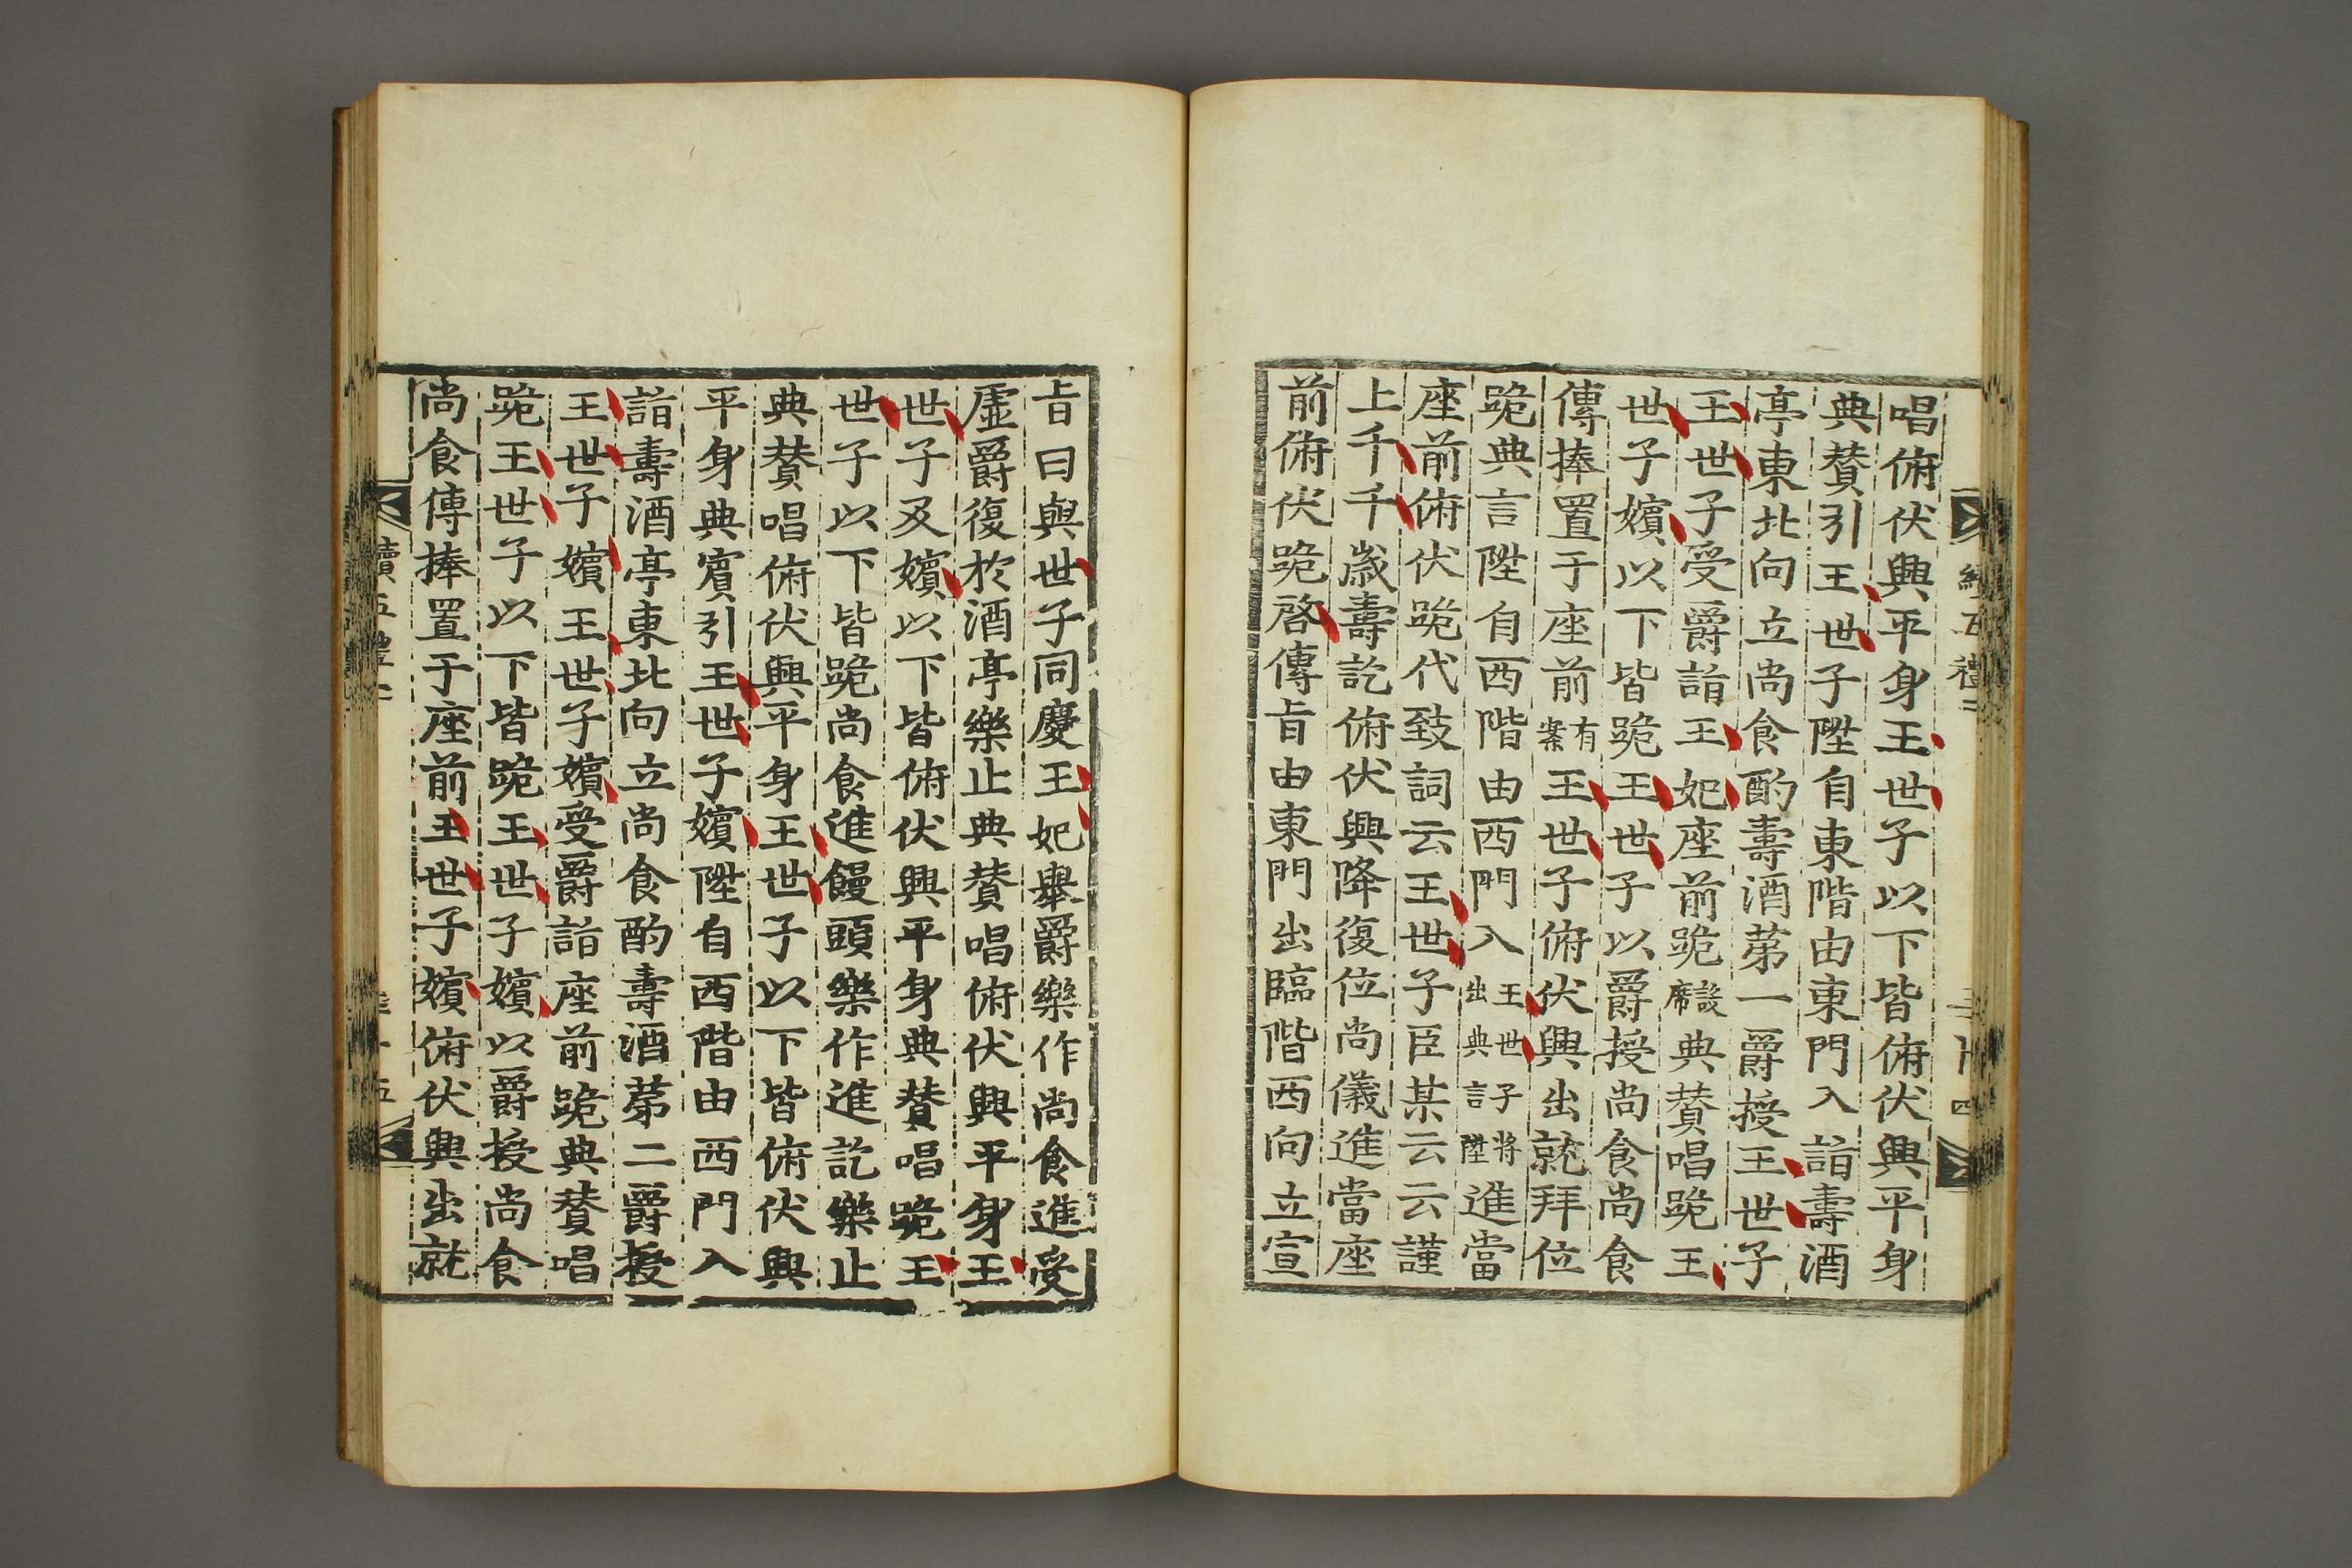 唱俯伏興平身王世子以下皆俯伏興平身
典賛引王世子陞自東階由東門入詣壽酒
亭東北向立尚食酌壽酒第一爵授王世子
王世子受爵詣王妃座前跪設席典賛唱跪王
世子嬪以下皆跪王世子以爵授尚食尚食
傳捧置于座前有案王世子俯伏興出就拜位
跪典言陞自西階由西門入王世子將出典言陞進當
座前俯伏跪代致詞云王世子臣某云云謹
上千千歳壽訖俯伏興降復位尚儀進當座
前俯伏跪啓傳旨由東門出臨階西向立宣
旨曰與世子同慶王妃舉爵樂作尚食進受
虛爵復於酒亭樂止典賛唱俯伏興平身王
世子及嬪以下皆俯伏興平身典賛唱跪王
世子以下皆跪尚食進饅頭樂作進訖樂止
典賛唱俯伏興平身王世子以下皆俯伏興
平身典賓引王世子嬪陞自西階由西門入
詣壽酒亭東北向立尚食酌壽酒第二爵授
王世子嬪王世子嬪受爵詣座前跪典賛唱
跪王世子以下皆跪王世子嬪以爵授尚食
尚食傳捧置于座前王世子嬪俯伏興出就